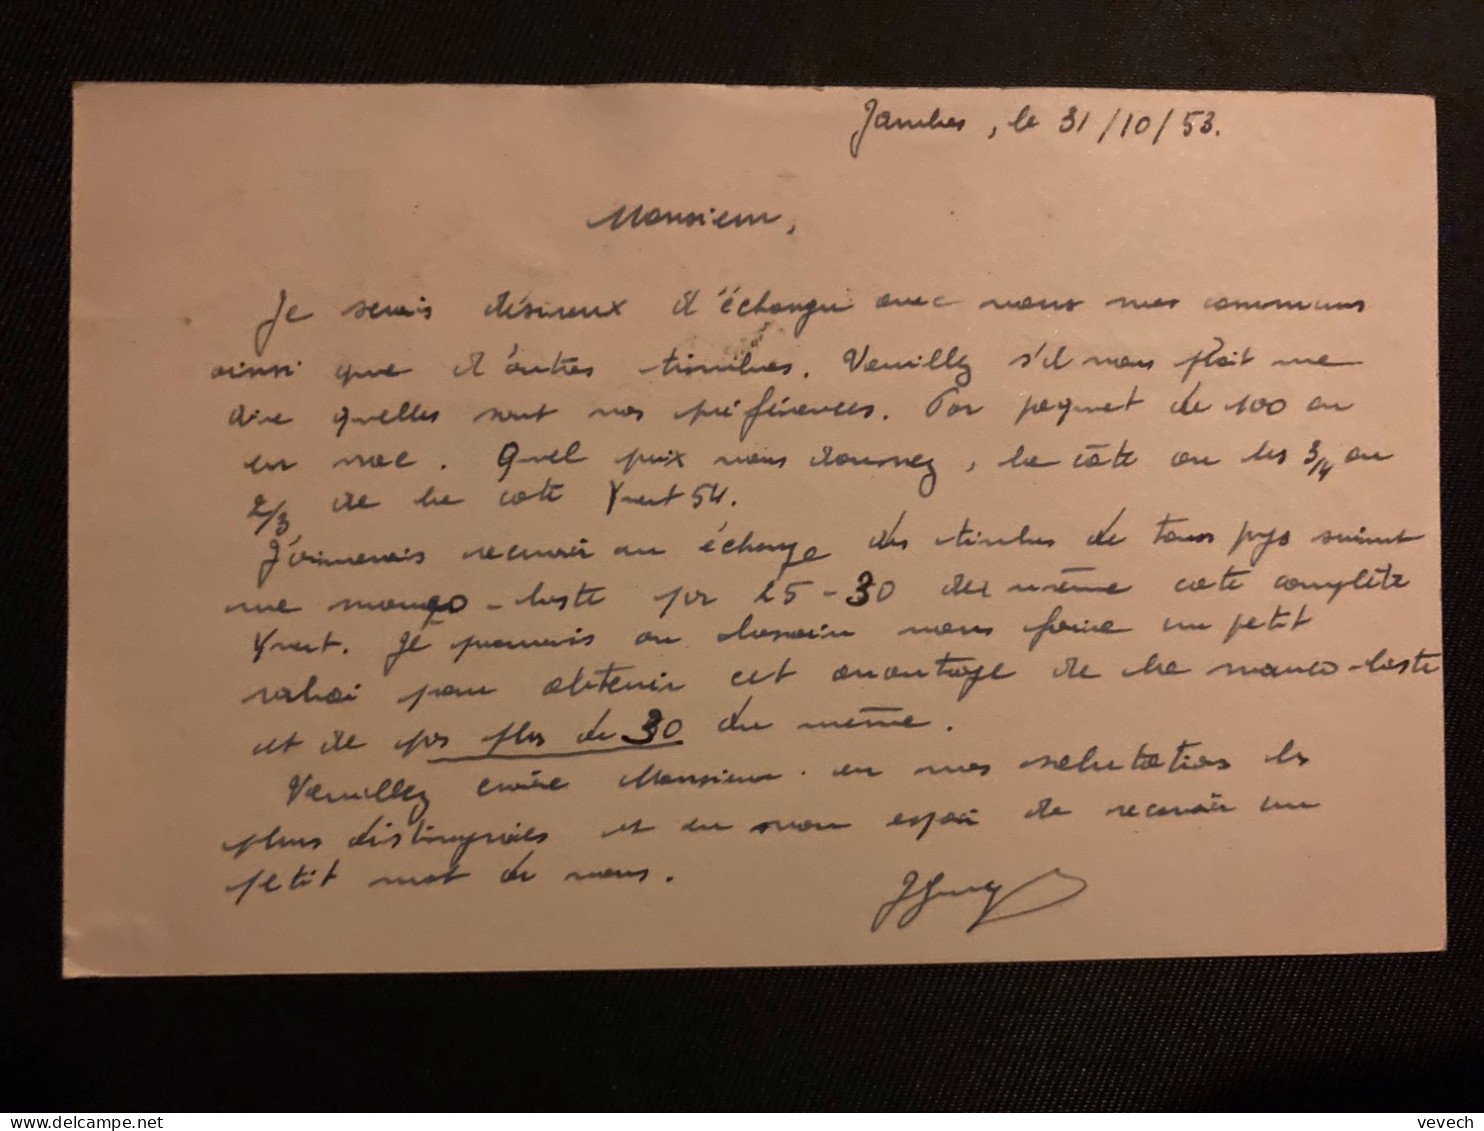 Jambes, le 31/10/53.
Monsieur,
Je serais désireux d'échanger avec vous mes communs
ainsi que d'autres timbres. Veuillez s'il vous plait me
dire quelles sont vos préférences. Par paquet de 100 ou
en vrac. Quel prix vous donnez, la côte ou les 3/4 ou
2/3 de la cote Yvert 54.
J'aimerais recevoir en échange des timbres de tous pays suivant
une manco-liste par 25-30 du même cote complète
Yvert. Je pourrais au besoin vous faire un petit
rabai pour obtenir cet avantage de la manco-liste
et de pas plus de 30 du même.
Veuillez croire Monsieur en mes salutations les
plus distinguées et en mon espoir de recevoir un
petit mot de vous.
vevech